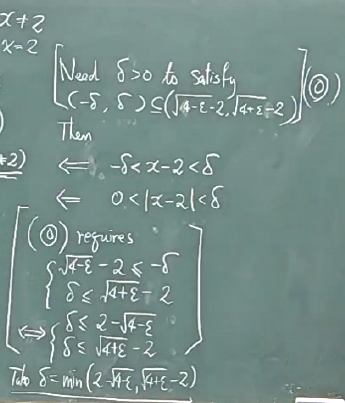 x≠2
x=2
[Need δ>0 to satisfy
(-δ, δ) ⊆ (√4-ε-2, √4+ε-2)] (◎)
Then
≠2) ⇐ -δ<x-2<δ
⇐ 0<|x-2|<δ
[(◎) requires
{√4-ε - 2 ≤ -δ
δ ≤ √4+ε - 2
⇔ {δ ≤ 2-√4-ε
δ ≤ √4+ε - 2]
Take δ = min(2-√4-ε, √4+ε-2)